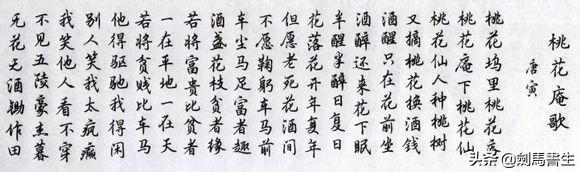 桃花庵歌
唐寅
桃花坞里桃花庵
桃花庵下桃花仙
桃花仙人种桃树
又摘桃花换酒钱
酒醒只在花前坐
酒醉还来花下眠
半醒半醉日复日
花落花开年复年
但愿老死花酒间
不愿鞠躬车马前
车尘马足富者趣
酒盏花枝贫者缘
若将富贵比贫者
一在平地一在天
若将贫贱比车马
他得驱驰我得闲
别人笑我太疯癫
我笑他人看不穿
不见五陵豪杰墓
无花无酒锄作田
头条 @劍馬書生